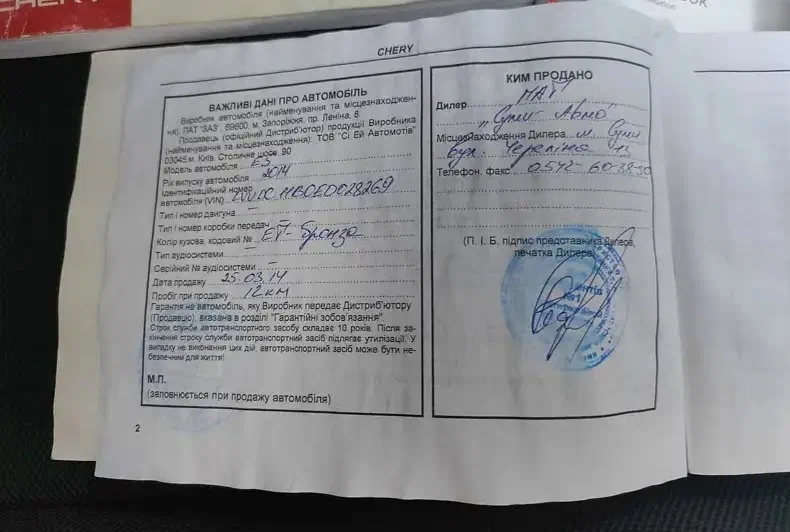 CHERY
CHERY
ВАЖЛИВІ ДАНІ ПРО АВТОМОБІЛЬ
Виробник автомобіля (найменування та місцезнаходжен-
ня): ПАТ "ЗАЗ", 69600, м. Запоріжжя, пр. Леніна, 8.
Продавець (офіційний Дистриб'ютор) продукції Виробника
(найменування та місцезнаходження): ТОВ "Сі Ей Автомотів"
03045 м. Київ, Столичне шосе, 90
Модель автомобіля E5
Рік випуску автомобіля 2014
Ідентифікаційний номер
автомобіля (VIN)
Тип і номер двигуна –
Тип і номер коробки передач –
Колір кузова, кодовий № - бронза
Тип аудіосистеми –
Серійний № аудіосистеми –
Дата продажу 25.03.14
Пробіг при продажу 12 км
Гарантія на автомобіль, яку Виробник передає Дистриб'ютору
(Продавцю), вказана в розділі "Гарантійні зобов'язання".
Строк служби автотранспортного засобу складає 10 років. Після за-
кінчення строку служби автотранспортний засіб підлягає утилізації. У
випадку не виконання цих дій, автотранспортний засіб може бути не-
безпечним для життя!
М.П.
(заповнюється при продажу автомобіля)
2
КИМ ПРОДАНО
Дилер
"Суми-Авто"
Місцезнаходження Дилера м. Суми
бул.
Телефон, факс 0542-60-
(П. І. Б. підпис представника Дилера,
печатка Дилера)
№1